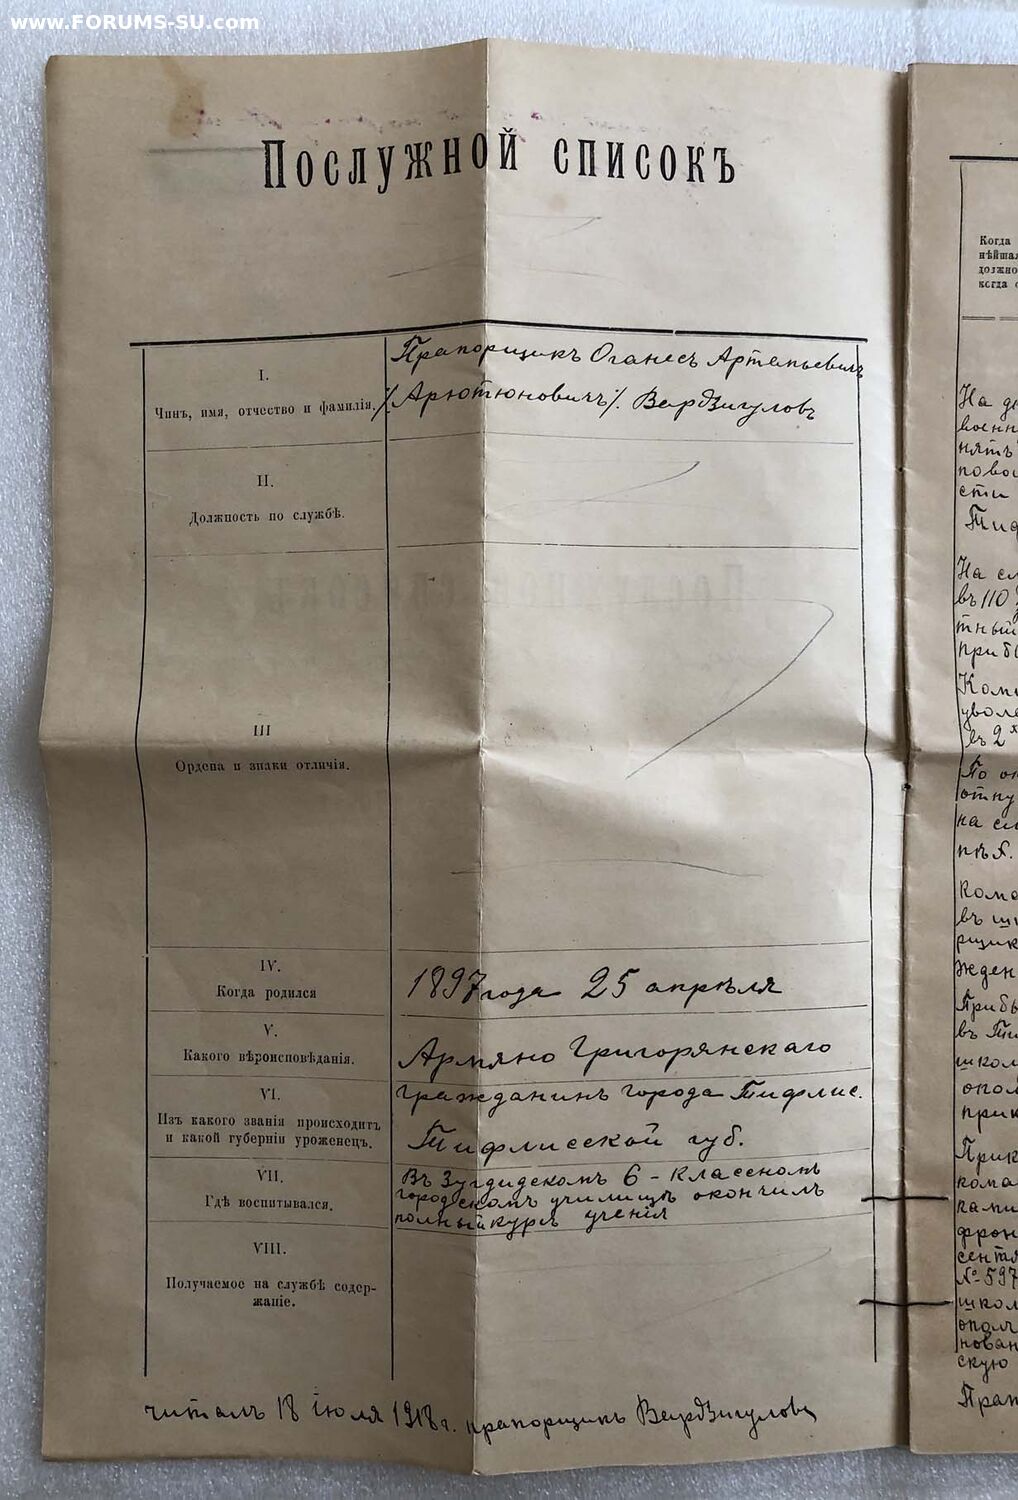 www.FORUMS-SU.com
Послужной списокъ
I.
Чинъ, имя, отчество и фамилія.
Прапорщикъ Оганесъ Артемьевичъ
/Арютюновичъ/. Вардзигуловъ
II.
Должность по службѣ.
III
Ордена и знаки отличія.
IV.
Когда родился
1897 года 25 апрѣля
V.
Какого вѣроисповѣданія.
Армяно Григорянскаго
VI.
Изъ какого званія происходитъ
и какой губерніи уроженецъ.
Гражданинъ города Тифлис.
Тифлисской губ.
VII.
Гдѣ воспитывался.
Въ Зугдидскомъ 6-классномъ
городскомъ училищѣ окончилъ
полный курсъ ученія
VIII.
Получаемое на службѣ содер-
жаніе.
читалъ 18 іюля 1918 г. прапорщикъ Вардзигуловъ
Когда
нѣйшая
должно
когда
На
военн
нять
пово
сти
Тиф
На сл
въ 110
тный
прибы
Кома
уволе
въ 2х
По ок
отпу
на сл
пѣх.
Кома
въ шк
рщик
жден
Прибы
въ Ти
школ
опол
прик
Прик
кома
ками
фрон
сентя
№ 597
школ
ополч
нован
скую
Прап